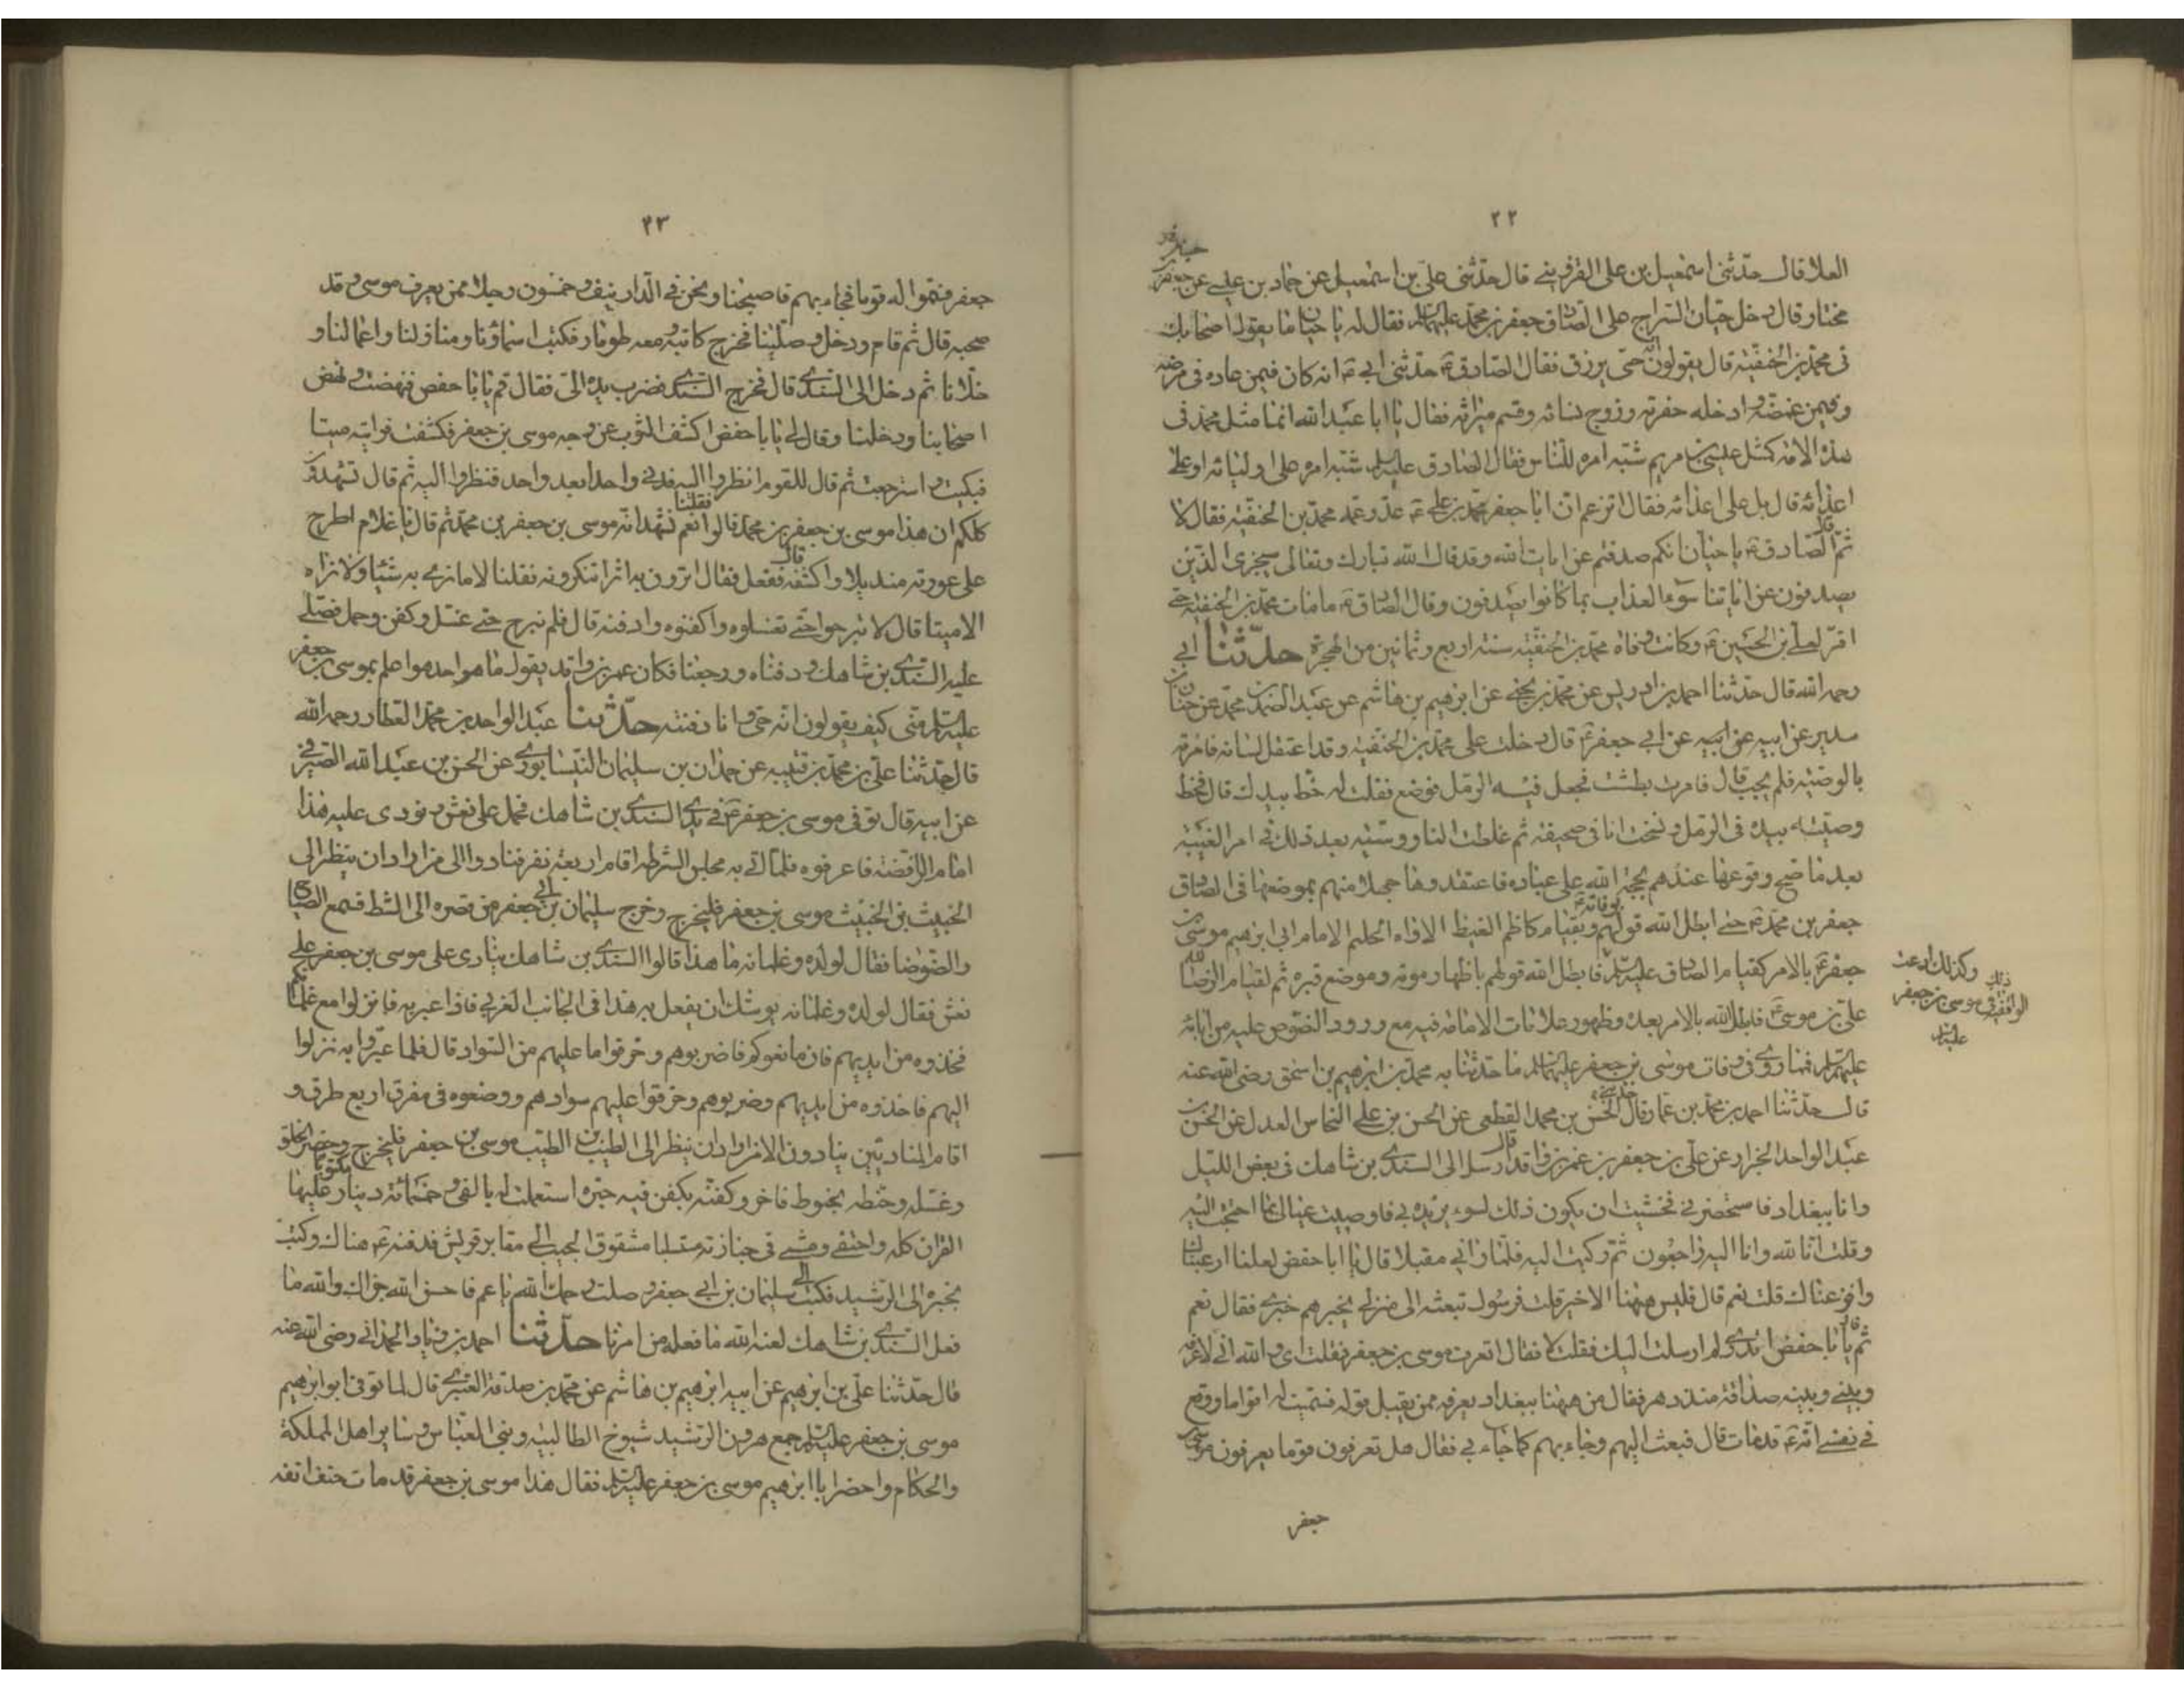 ٢٢
العلا قال حدثنى اسمعيل بن على القزوينى قال حدثنى على بن اسمعيل عن حماد بن عيسى عن
مختار قال دخل حيان السراج على الصادق جعفر بن محمد عليهما السلم فقال له يا حيان ما يقول اصحابك
فى محمد بن الحنفية قال يقولون انه حى يرزق فقال الصادق ع حدثنى ابى ع انه كان فيمن عاده فى مرضه
وفيمن غمضه وادخله حفرته وزوج نسائه وقسم ميراثه فقال يا ابا عبد الله انما مثل محمد فى
هذه الامة كمثل عيسى بن مريم شبه امره للناس فقال الصادق عليه السلم شبه امره على اوليائه او على
اعدائه قال بل على اعدائه فقال اتزعم ان ابا جعفر محمد بن على ع عدو عمه محمد بن الحنفية فقال لا
ثم قال الصادق ع يا حيان انكم صدفتم عن ايات الله وقد قال الله تبارك وتعالى سيجزى الذين
يصدفون عن اياتنا سوء العذاب بما كانوا يصدفون وقال الصادق ع ما مات محمد بن الحنفية حتى
اقر لعلى بن الحسين ع وكانت وفاة محمد بن الحنفية سنة اربع وثمانين من الهجرة حدثنا ابى
رحمه الله قال حدثنا احمد بن ادريس عن محمد بن يحيى عن ابرهيم بن هاشم عن عبد الصمد بن محمد عن حنان بن
سدير عن ابيه عن ابى جعفر ع قال دخلت على محمد بن الحنفية وقد اعتقل لسانه فامرته
بالوصية فلم يجب قال فامرت بطشت فجعل فيه الرمل فوضع فقلت له خط بيدك قال فخط
وصيته بيده فى الرمل ونسخت انا فى صحيفة ثم غلطت الناووسية بعد ذلك فى امر الغيبة
بعد ما صح وقوعها عندهم بحجة الله على عباده فاعتقدوها جهلا منهم بموضعها فى الصادق
جعفر بن محمد ع حتى ابطل الله قولهم بوفاته ع وبقيام كاظم الغيظ الاواه الحليم الامام ابى ابرهيم موسى بن
جعفر ع بالامر كقيام الصادق عليه السلم فابطل الله قولهم باظهار موته وموضع قبره ثم لقيام الرضا
على بن موسى ع فابطل الله بالامر بعده وظهور علامات الامامة فيه مع ورود النصوص عليه من ابائه
عليهم السلم فمما روى فى وفات موسى بن جعفر عليهما السلم ما حدثنا به محمد بن ابرهيم بن اسحق رضى الله عنه
قال حدثنا احمد بن محمد بن عمار قال حدثنى الحسن بن محمد القطعى عن الحسن بن على النخاس العدل عن الحسن بن
عبد الواحد الخزاز عن على بن جعفر بن عمر بن واقد قال ارسل الى السندى بن شاهك فى بعض الليل
وانا ببغداد فاستحضرنى فخشيت ان يكون ذلك لسوء يريده بى فاوصيت عيالى بما احتجت اليه
وقلت انا لله وانا اليه راجعون ثم ركبت اليه فلما رانى مقبلا قال يا ابا حفص لعلنا ارعبناك
وافزعناك قلت نعم قال فليس هيهنا الا خير قلت فرسول تبعثه الى منزلى يخبرهم خبرى فقال نعم
ثم قال يا ابا حفص اتدرى لم ارسلت اليك فقلت لا فقال اتعرف موسى بن جعفر فقلت اى والله انى لاعرفه
وبينى وبينه صداقة منذ دهر فقال من هيهنا ببغداد يعرفه ممن يقبل قوله فسميت له اقواما ووقع
فى نفسى انه ع قد مات قال فبعث اليهم وجاء بهم كما جاء بى فقال هل تعرفون قوما يعرفون موسى بن
جعفر
وكذلك ادعت ذلك
الواقفة فى موسى بن جعفر
عليه السلم
٢٣
جعفر فسموا له قوما فجاء بهم فاصبحنا ونحن فى الدار نيف وخمسون رجلا ممن يعرف موسى وقد
صحبه قال ثم قام ودخل وصلينا فخرج كاتبه ومعه طومار فكتب اسماؤنا ومنازلنا واعمالنا و
حلانا ثم دخل الى السندى قال فخرج السندى فضرب يده الى فقال قم يا ابا حفص فنهضت ونهض
اصحابنا ودخلنا وقال لى يا ابا حفص اكشف الثوب عن وجه موسى بن جعفر فكشفت فرايته ميتا
فبكيت واسترجعت ثم قال للقوم انظروا اليه فدنى واحدا بعد واحد فنظروا اليه ثم قال تشهدون
كلكم ان هذا موسى بن جعفر بن محمد قالوا فقلنا نعم نشهد انه موسى بن جعفر بن محمد ثم قال يا غلام اطرح
على عورته منديلا واكشفه قال ففعل فقال اترون به اثرا تنكرونه فقلنا لا ما نرى به شيئا ولا نراه
الا ميتا قال لا تبرحوا حتى تغسلوه واكفنوه وادفنه قال فلم نبرح حتى غسل وكفن وحمل فصلى
عليه السندى بن شاهك ودفناه ورجعنا فكان عمر بن واقد يقول ما هو احد هو اعلم بموسى بن جعفر
عليه السلم منى كيف يقولون انه حى وانا دفنته حدثنا عبد الواحد بن محمد العطار رحمه الله
قال حدثنا على بن محمد بن قتيبة عن حمدان بن سليمان النيسابورى عن الحسن بن عبد الله الصيرفى
عن ابيه قال توفى موسى بن جعفر ع فى يدى السندى بن شاهك فحمل على نعش ونودى عليه هذا
امام الرافضة فاعرفوه فلما اتى به مجلس الشرطة اقام اربعة نفر فنادوا الا من اراد ان ينظر الى
الخبيث بن الخبيث موسى بن جعفر فليخرج وخرج سليمان بن ابى جعفر من قصره الى الشط فسمع الصياح
والضوضا فقال لولده وغلمانه ما هذا قالوا السندى بن شاهك ينادى على موسى بن جعفر على
نعش فقال لولده وغلمانه يوشك ان يفعل به هذا فى الجانب الغربى فاذا عبر به فانزلوا مع غلمانكم
فخذوه من ايديهم فان مانعوكم فاضربوهم وخرقوا ما عليهم من السواد قال فلما عبروا به نزلوا
اليهم فاخذوه من ايديهم وضربوهم وخرقوا عليهم سوادهم ووضعوه فى مفرق اربع طرق و
اقام المناديين ينادون الا من اراد ان ينظر الى الطيب بن الطيب موسى بن جعفر فليخرج وحضر الخلق
وغسله وحنطه بحنوط فاخر وكفنه بكفن فيه حبرة استعملت له بالفى وخمسمائة دينار مكتوبا عليها
القران كله واحتفى ومشى فى جنازته متسلبا مشقوق الجيب الى مقابر قريش فدفنه ع هناك وكتب
بخبره الى الرشيد فكتب الى سليمان بن ابى جعفر وصلت رحمك الله يا عم فاحسن الله جزاك والله ما
فعل السندى بن شاهك لعنه الله ما فعله من امرنا حدثنا احمد بن زياد الهمدانى رضى الله عنه
قال حدثنا على بن ابرهيم عن ابيه ابرهيم بن هاشم عن محمد بن صدقة العنبرى قال لما توفى ابو ابرهيم
موسى بن جعفر عليه السلم جمع هرون الرشيد شيوخ الطالبيه وبنى العباس وساير اهل المملكة
والحكام واحضر ابا ابرهيم موسى بن جعفر عليه السلم فقال هذا موسى بن جعفر قد مات حتف انفه